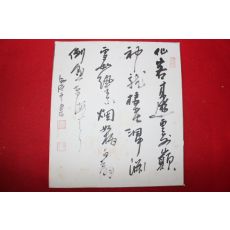 仙客来遊雲外巓
神龍棲老洞中淵
雪如紈素煙如柄白扇
倒懸東海天